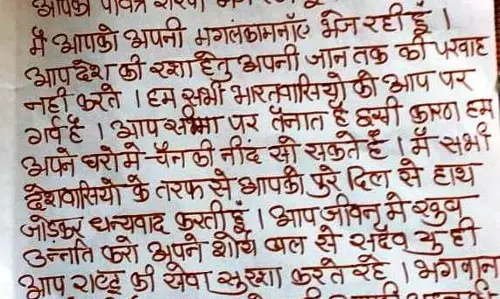 आपको पवित्र राखी भेज रही हूँ
मै आपको अपनी मगलंकामनाँए भेज रही हूँ ।
आप देश की रक्षा हेतु अपनी जान तक की परवाह
नही करते । हम सभी भारतवासियो को आप पर
गर्व है । आप सीमा पर तैनात है इसी कारण हम
अपने घरो मे चैन की नींद सो सकते है । मैं सभी
देशवासियो के तरफ से आपको पुरे दिल से हाथ
जोड़कर धन्यवाद करती हूँ । आप जीवन मे खुब
उन्नति करो अपने शौर्य बल से सदैव यु ही
आप राष्ट्र की सेवा सुरक्षा करते रहे । भगवान